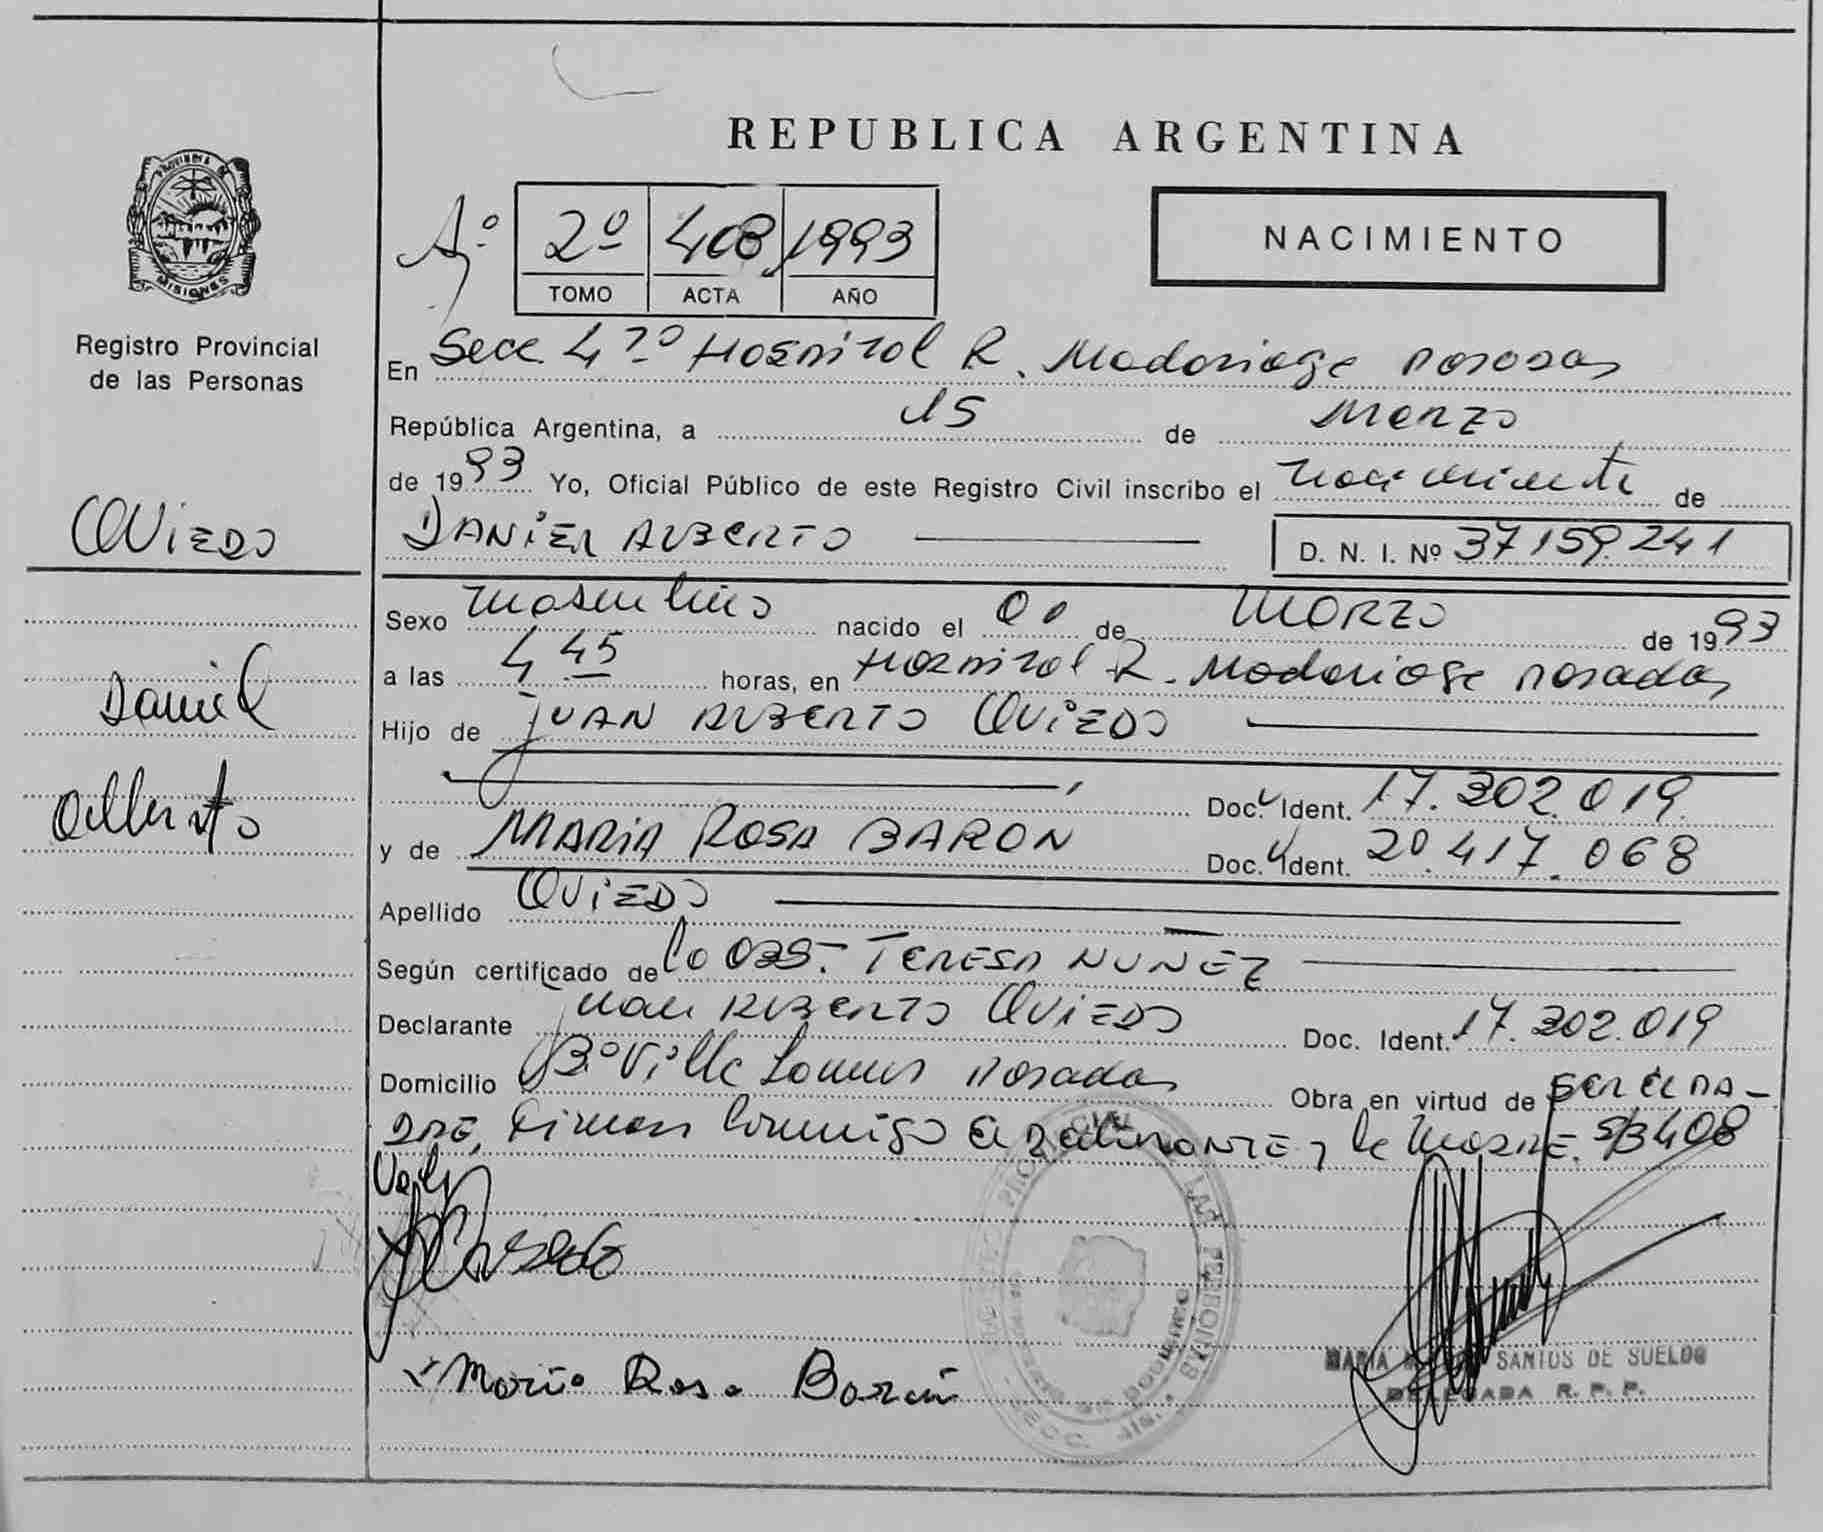 REPUBLICA ARGENTINA
PROVINCIA DE
MISIONES
Registro Provincial
de las Personas
Aº
2º 408 1993
TOMO ACTA AÑO
NACIMIENTO
En Secc. 4ta Hospital R. Madariaga Posadas
República Argentina, a 15 de Marzo
de 1993 Yo, Oficial Público de este Registro Civil inscribo el nacimiento de
DANIEL ALBERTO
D. N. I. Nº 37159.241
OVIEDO
Daniel
Alberto
Sexo Masculino nacido el de Marzo de 1993
a las 4 45 horas, en Hospital R. Madariaga Posadas
Hijo de JUAN ALBERTO OVIEDO
Doc. Ident. 17.302.019
y de MARIA ROSA BARON Doc. Ident. 20.417.068
Apellido OVIEDO
Según certificado de la OBS. TERESA NUÑEZ
Declarante Juan ALBERTO OVIEDO Doc. Ident. 17.302.019
Domicilio Bº Villa Posadas Obra en virtud de SER EL PA-
DRE, Firman conmigo el declarante y la MADRE. S/B 408
Vale
Maria Rosa Baron
MARIA SANTOS DE SUELDO
DELEGADA R. P. P.